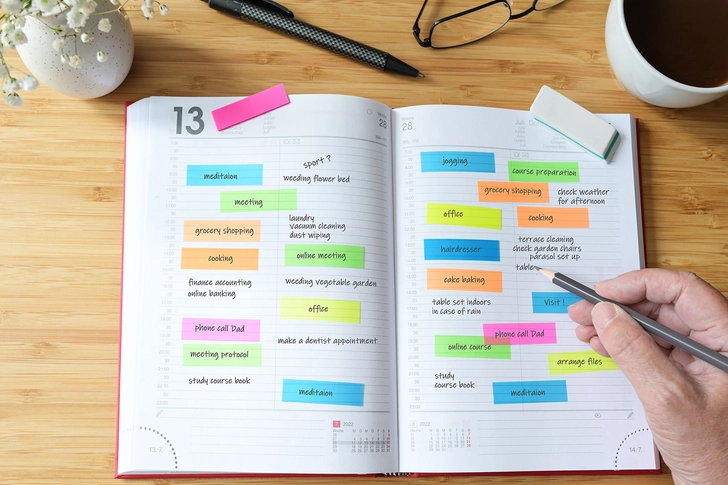 13
28
meditaion
sport ?
weeding flower bed
meeting
grocery shopping
laundry
vacuum cleaning
dust wiping
cooking
online meeting
finance accounting
online banking
weeding vegetable garden
office
phone call Dad
make a dentist appointment
meeting protocol
study course book
meditaion
7 2022
13. 7.
28
jogging
course preparation
grocery shopping
check weather
for afternoon
office
cooking
hairdresser
terrace cleaning
check garden chairs
parasol set up
table
cake baking
table set indoors
in case of rain
Visit !
phone call Dad
online course
arrange files
study
course book
meditaion
2022
14. 7.